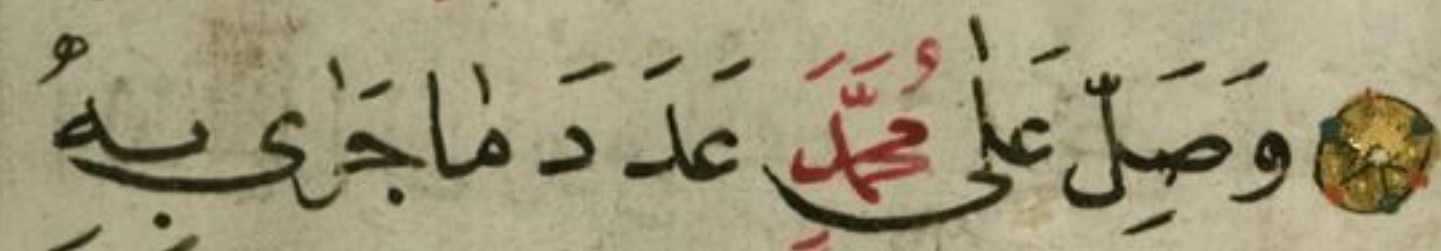 وَصَلِّ عَلٰى مُحَمَّدَ عَدَدَ مٰا جَرٰى بِهُ